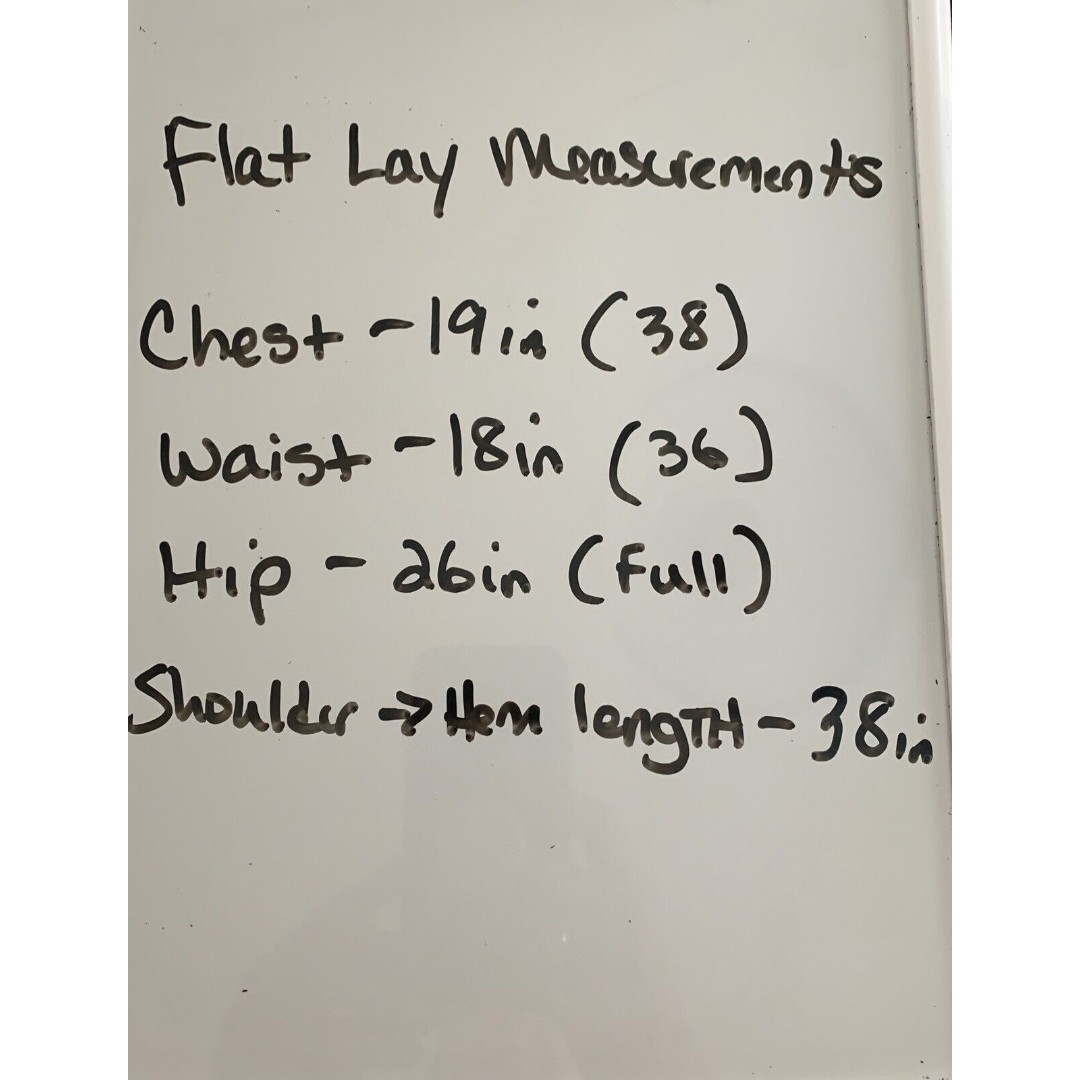 Flat Lay Measurements
Chest - 19in (38)
Waist - 18in (36)
Hip - 26in (Full)
Shoulder → Hem lengTH - 38in